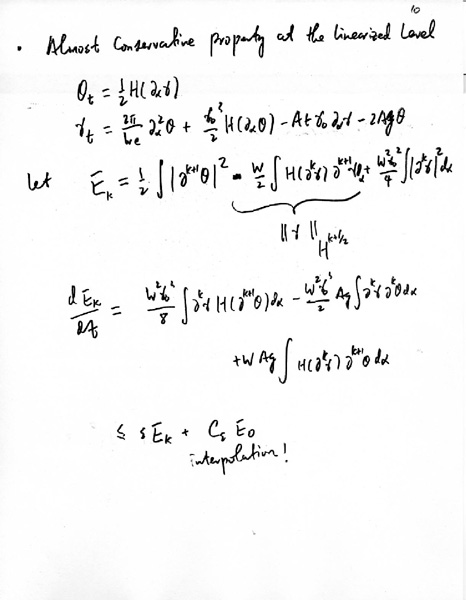 10
• Almost Conservative property at the linearized level
θ_t = 1/2 H(∂_α γ)
γ_t = 2π/We ∂_α² θ + γ_0²/2 H(∂_α θ) - At γ_0 ∂_α γ - 2Ag θ
let E_k = 1/2 ∫ |∂^{k+1} θ|² - W/2 ∫ H(∂^k γ) ∂^{k+1} γ dα + W² γ_0²/4 ∫ |∂^k γ|² dα
||γ||_{H^{k+1/2}}
dE_k/dt = W² γ_0²/8 ∫ ∂^k γ H(∂^{k+1} θ) dα - W² γ_0²/2 Ag ∫ ∂^k γ ∂^k θ dα
+ W Ag ∫ H(∂^k γ) ∂^{k+1} θ dα
≤ δ E_k + C_δ E_0
interpolation!